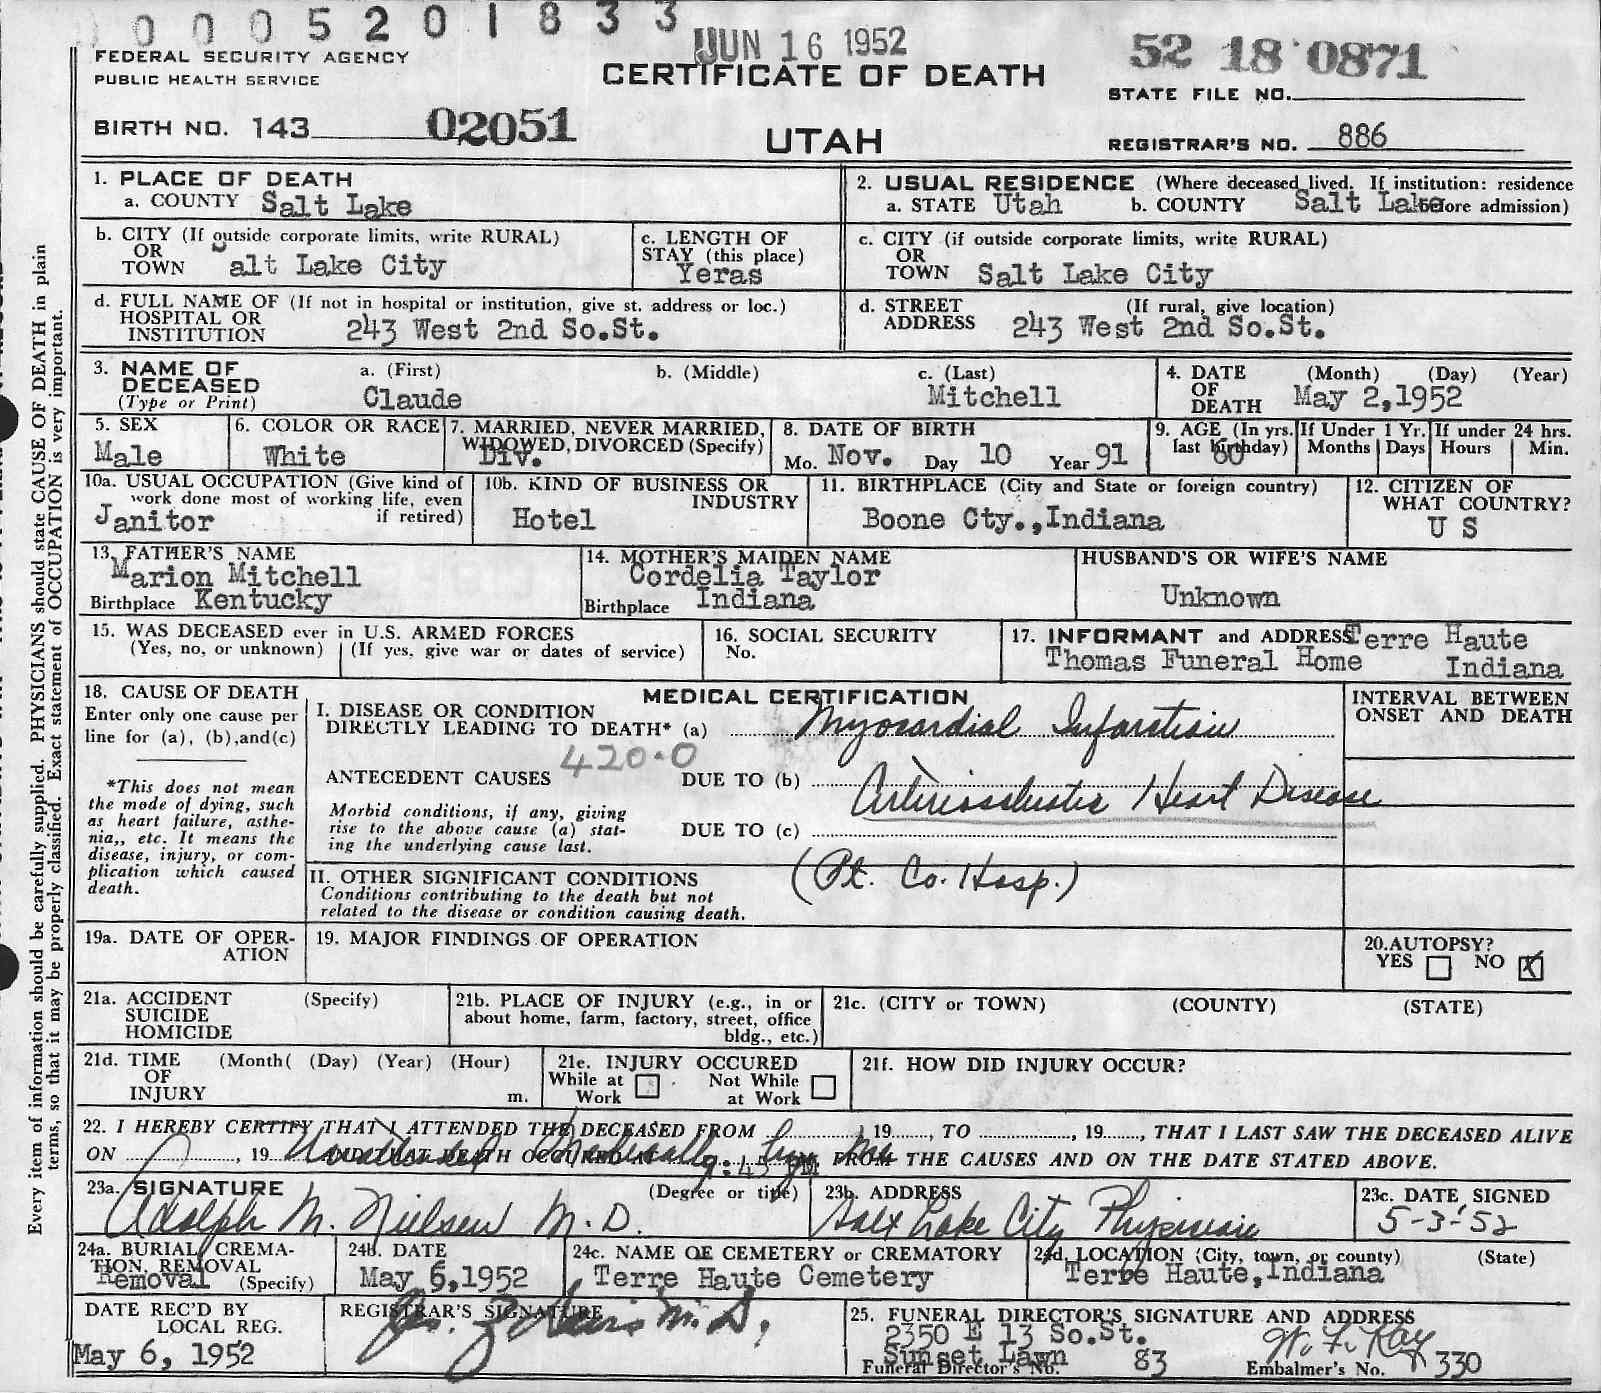 0005201833
JUN 16 1952
52 18 0871
FEDERAL SECURITY AGENCY
PUBLIC HEALTH SERVICE
CERTIFICATE OF DEATH
STATE FILE NO.
BIRTH NO. 143 02051
UTAH
REGISTRAR'S NO. 886
1. PLACE OF DEATH
a. COUNTY Salt Lake
2. USUAL RESIDENCE (Where deceased lived. If institution: residence before admission)
a. STATE Utah b. COUNTY Salt Lake
b. CITY (If outside corporate limits, write RURAL)
OR
TOWN Salt Lake City
c. LENGTH OF
STAY (this place)
Yeras
c. CITY (if outside corporate limits, write RURAL)
OR
TOWN Salt Lake City
d. FULL NAME OF (If not in hospital or institution, give st. address or loc.)
HOSPITAL OR
INSTITUTION 243 West 2nd So.St.
d. STREET (If rural, give location)
ADDRESS 243 West 2nd So.St.
3. NAME OF
DECEASED
(Type or Print)
a. (First) b. (Middle) c. (Last)
Claude Mitchell
4. DATE (Month) (Day) (Year)
OF
DEATH May 2,1952
5. SEX
Male
6. COLOR OR RACE
White
7. MARRIED, NEVER MARRIED,
WIDOWED, DIVORCED (Specify)
Div.
8. DATE OF BIRTH
Mo. Nov. Day 10 Year 91
9. AGE (In yrs.
last birthday)
60
If Under 1 Yr.
Months Days
If under 24 hrs.
Hours Min.
10a. USUAL OCCUPATION (Give kind of
work done most of working life, even
if retired)
Janitor
10b. KIND OF BUSINESS OR
INDUSTRY
Hotel
11. BIRTHPLACE (City and State or foreign country)
Boone Cty.,Indiana
12. CITIZEN OF
WHAT COUNTRY?
U S
13. FATHER'S NAME
Marion Mitchell
Birthplace Kentucky
14. MOTHER'S MAIDEN NAME
Cordelia Taylor
Birthplace Indiana
HUSBAND'S OR WIFE'S NAME
Unknown
15. WAS DECEASED ever in U.S. ARMED FORCES
(Yes, no, or unknown) (If yes, give war or dates of service)
16. SOCIAL SECURITY
No.
17. INFORMANT and ADDRESS Terre Haute
Thomas Funeral Home Indiana
18. CAUSE OF DEATH
Enter only one cause per
line for (a), (b),and(c)
*This does not mean
the mode of dying, such
as heart failure, asthe-
nia,, etc. It means the
disease, injury, or com-
plication which caused
death.
MEDICAL CERTIFICATION
I. DISEASE OR CONDITION
DIRECTLY LEADING TO DEATH* (a) Myocardial Infarction
420.0
ANTECEDENT CAUSES DUE TO (b) Arteriosclerotic Heart Disease
Morbid conditions, if any, giving
rise to the above cause (a) stat-
ing the underlying cause last.
DUE TO (c)
(Pt. Co. Hosp.)
II. OTHER SIGNIFICANT CONDITIONS
Conditions contributing to the death but not
related to the disease or condition causing death.
INTERVAL BETWEEN
ONSET AND DEATH
19a. DATE OF OPER-
ATION
19. MAJOR FINDINGS OF OPERATION
20.AUTOPSY?
YES NO X
21a. ACCIDENT (Specify)
SUICIDE
HOMICIDE
21b. PLACE OF INJURY (e.g., in or
about home, farm, factory, street, office
bldg., etc.)
21c. (CITY or TOWN) (COUNTY) (STATE)
21d. TIME (Month( (Day) (Year) (Hour)
OF
INJURY m.
21e. INJURY OCCURED
While at Work Not While at Work
21f. HOW DID INJURY OCCUR?
22. I HEREBY CERTIFY THAT I ATTENDED THE DECEASED FROM , 19 , TO , 19 , THAT I LAST SAW THE DECEASED ALIVE
ON , 19 AND THAT DEATH OCCURRED AT 9:45 PM FROM THE CAUSES AND ON THE DATE STATED ABOVE.
Unattended Medically by me
23a. SIGNATURE (Degree or title)
Adolph M. Nielsen M.D.
23b. ADDRESS
Salt Lake City Physician
23c. DATE SIGNED
5-3-52
24a. BURIAL, CREMA-
TION, REMOVAL
Removal (Specify)
24b. DATE
May 6,1952
24c. NAME OF CEMETERY or CREMATORY
Terre Haute Cemetery
24d. LOCATION (City, town, or county) (State)
Terre Haute,Indiana
DATE REC'D BY
LOCAL REG.
May 6, 1952
REGISTRAR'S SIGNATURE
M.D.
25. FUNERAL DIRECTOR'S SIGNATURE AND ADDRESS
2350 E 13 So.St.
Sunset Lawn W. F. Kay
Funeral Director's No. 83 Embalmer's No. 330
Every item of information should be carefully supplied. PHYSICIANS should state CAUSE OF DEATH in plain
terms, so that it may be properly classified. Exact statement of OCCUPATION is very important.